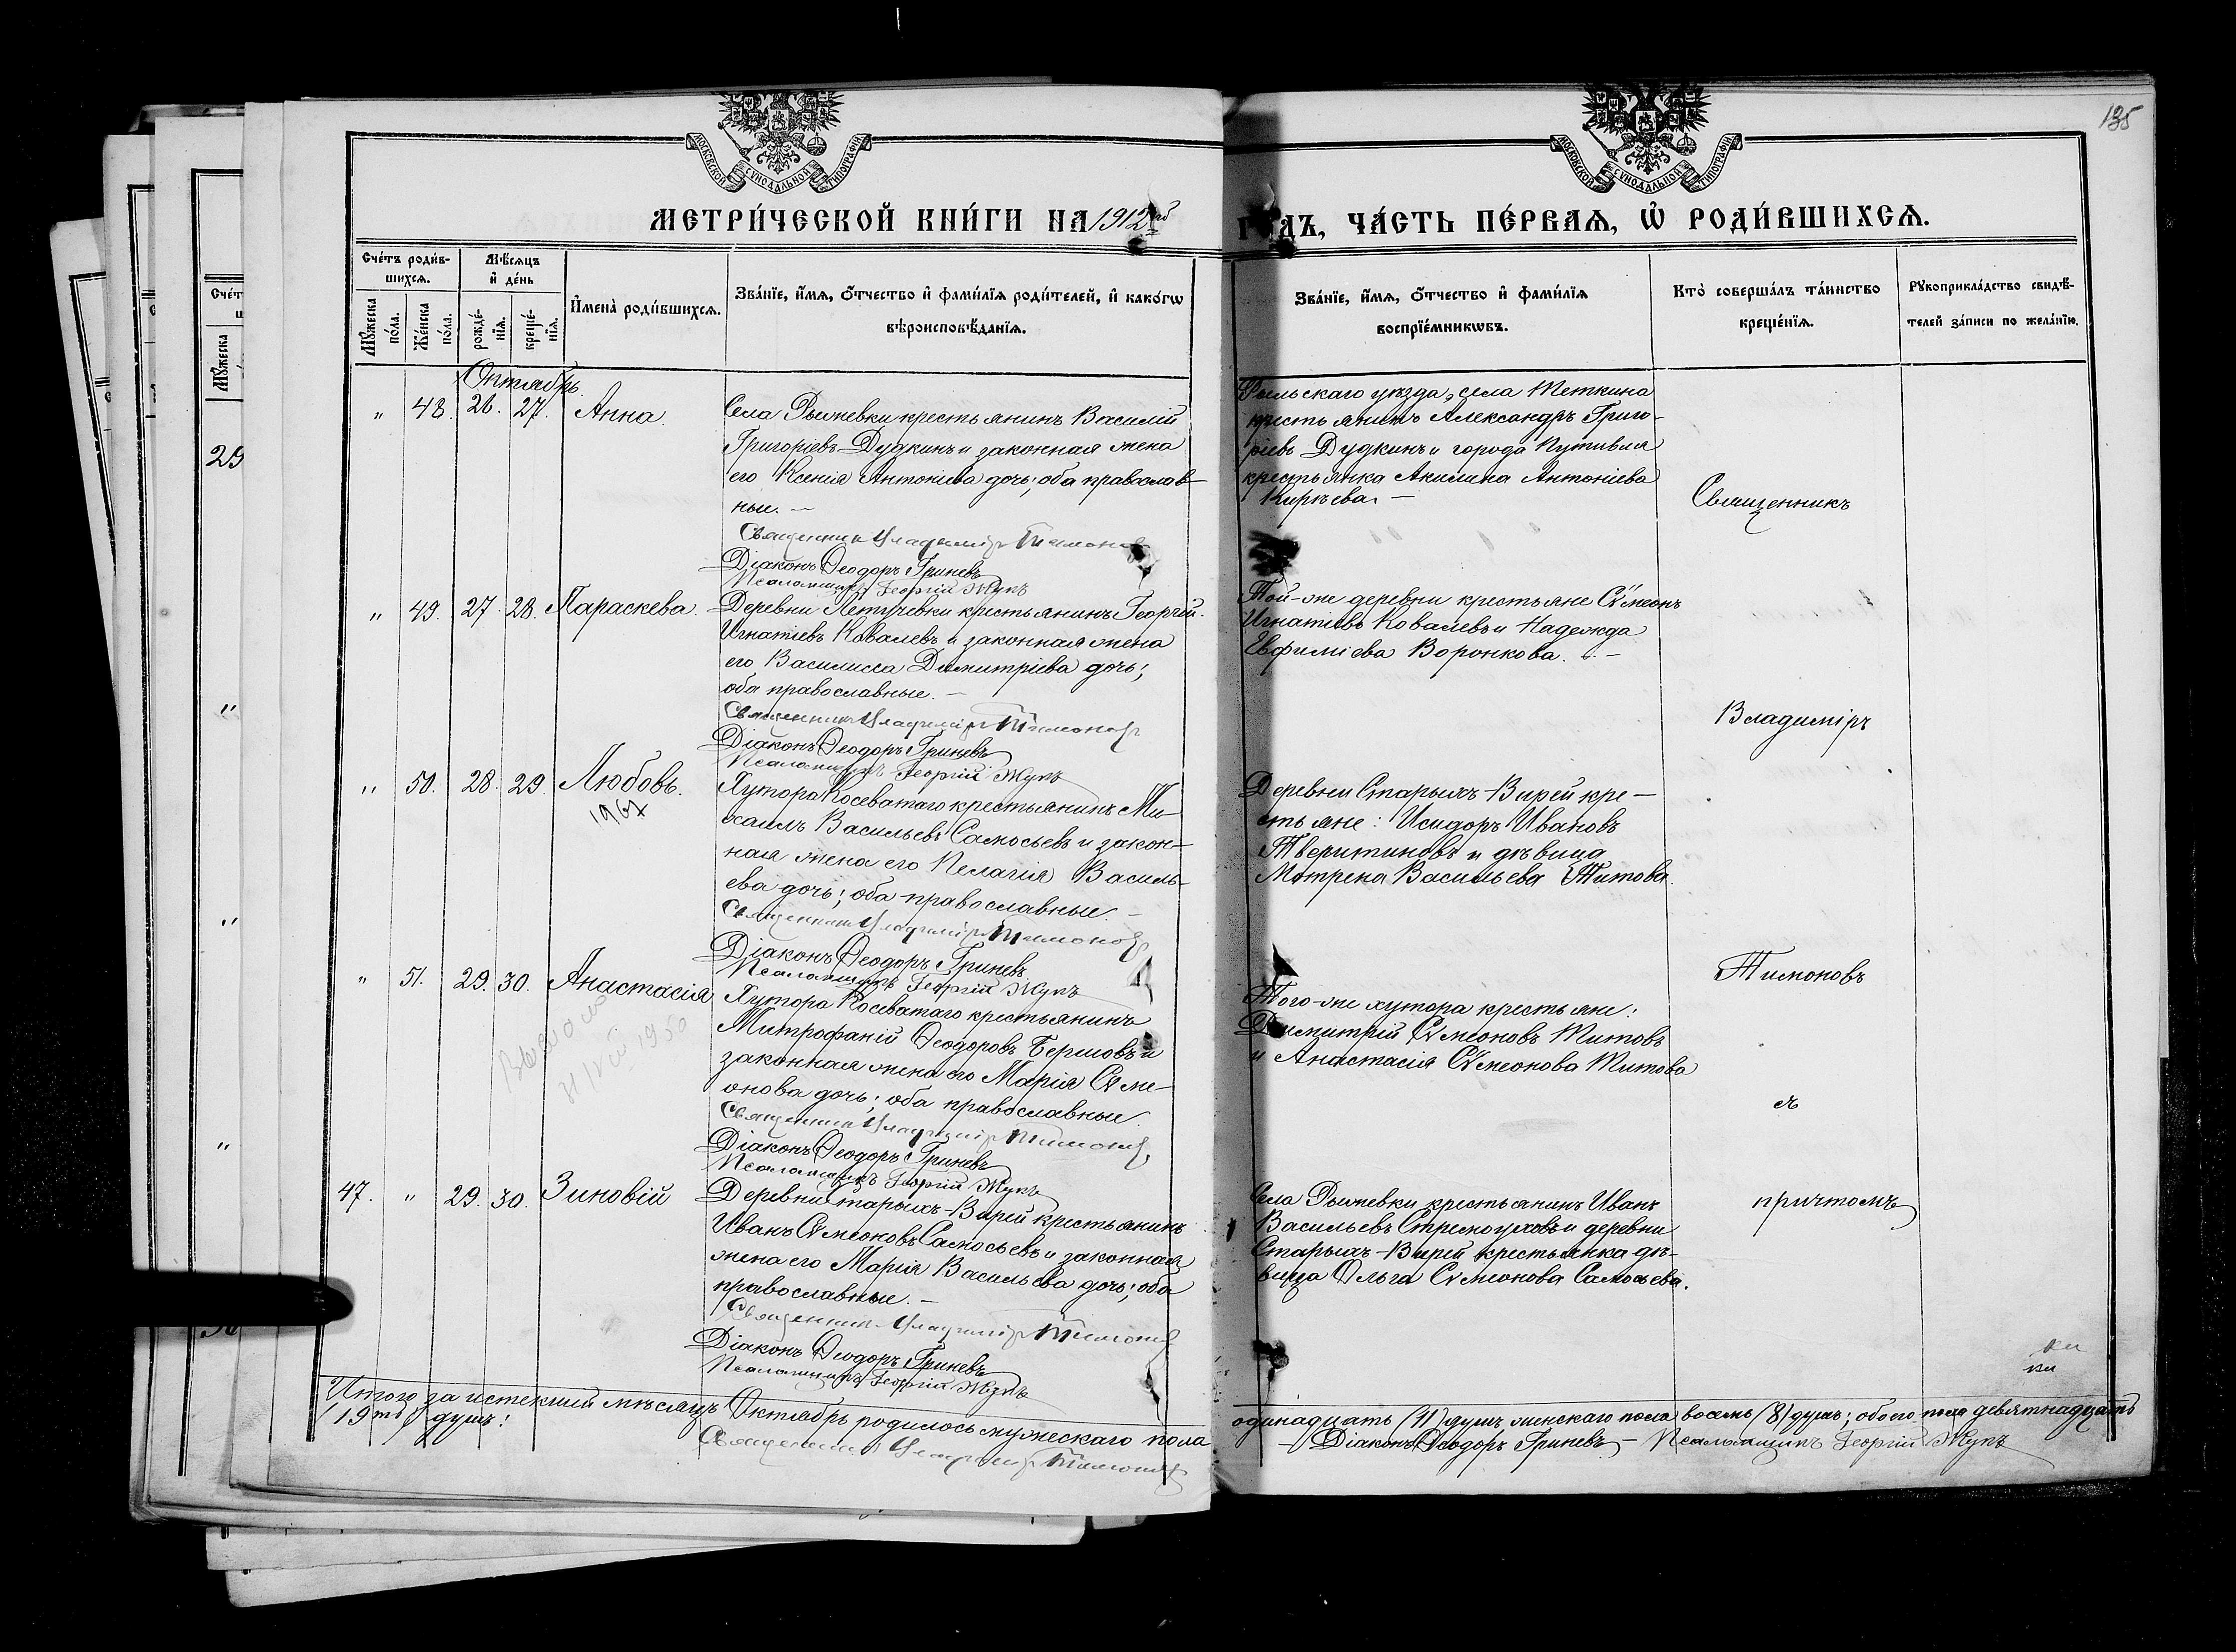 135
МОСКОВСКОЙ СѴНОДАЛЬНОЙ ТИПОГРАФІИ
МОСКОВСКОЙ СѴНОДАЛЬНОЙ ТИПОГРАФІИ
МЕТРИ́ЧЕСКОЙ КНИ́ГИ НА 1912 ГОДЪ, ЧА́СТЬ ПЕ́РВАѦ, Ѡ҆ РОДИ́ВШИХСѦ.
Сче́тъ роди́в-
шихсѧ.
Мꙋ́жеска по́ла.
Же́нска по́ла.
Мѣ́сѧцъ
и҆ де́нь
рожде́-
нїѧ.
креще́-
нїѧ.
И҆мена̀ роди́вшихсѧ.
Зва́нїе, и҆́мѧ, ѻ҆́тчество и҆ фами́лїѧ роди́телей, и҆ како́гѡ
вѣроисповѣ́данїѧ.
Зва́нїе, и҆́мѧ, ѻ҆́тчество и҆ фами́лїѧ
воспрїе́мникѡвъ.
Кто̀ соверша́лъ та́инство
креще́нїѧ.
Рꙋкоприкла́дство свидѣ́-
телей за́писи по жела́нїю.
Октябрь.
" 48. 26. 27. Анна.
Села Рыжевки крестьянинъ Василій
Григоріевъ Дудкинъ и законная жена
его Ксенія Антоніева дочь; оба православ-
ные. —
Священникъ Владиміръ Тимоновъ
Діаконъ Ѳеодоръ Гриневъ
Псаломщикъ Георгій Жукъ
Рыльскаго уѣзда, села Теткина
крестьянинъ Александръ Григо-
ріевъ Дудкинъ и города Путивля
крестьянка Акилина Антоніева
Кирѣева. —
" 49. 27. 28. Параскева.
Деревни Петушевки крестьянинъ Георгій
Игнатіевъ Ковалевъ и законная жена
его Василисса Димитріева дочь;
оба православные. —
Священникъ Владиміръ Тимоновъ
Діаконъ Ѳеодоръ Гриневъ
Псаломщикъ Георгій Жукъ
Той-же деревни крестьяне Сѵмеонъ
Игнатіевъ Ковалевъ и Надежда
Евфиміева Воронкова. —
" 50. 28. 29. Любовь.
1967
Хутора Косеватаго крестьянинъ Ми-
хаилъ Васильевъ Самосьевъ и закон-
ная жена его Пелагія Василь-
ева дочь; оба православные. —
Священникъ Владиміръ Тимоновъ
Діаконъ Ѳеодоръ Гриневъ
Псаломщикъ Георгій Жукъ
Деревни Старыхъ-Вирей кре-
стьяне: Исидоръ Ивановъ
Тверитиновъ и дѣвица
Мотрена Васильева Титова.
" 51. 29. 30. Анастасія
1950
Хутора Косеватаго крестьянинъ
Митрофаній Ѳеодоровъ Берловъ и
законная жена его Марія Сѵме-
онова дочь; оба православные.
Священникъ Владиміръ Тимоновъ
Діаконъ Ѳеодоръ Гриневъ
Псаломщикъ Георгій Жукъ
Того-же хутора крестьяне:
Димитрій Сѵмеоновъ Титовъ
и Анастасія Сѵмеонова Титова
47. " 29. 30. Зиновій
Деревни Старыхъ-Вирей крестьянинъ
Иванъ Сѵмеоновъ Самосьевъ и законная
жена его Марія Васильева дочь; оба
православные. —
Священникъ Владиміръ Тимоновъ
Діаконъ Ѳеодоръ Гриневъ
Псаломщикъ Георгій Жукъ
Села Рыжевки крестьянинъ Иванъ
Васильевъ Стремоуховъ и деревни
Старыхъ-Вирей крестьянка дѣ-
вица Ольга Сѵмеонова Самосьева.
Священникъ
Владиміръ
Тимоновъ
съ
причтомъ
Итого за истекшій мѣсяцъ Октябрь родилось мужескаго пола одинадцать (11) душъ женскаго пола восемь (8) душъ; обоего пола девятнадцать
(19ть) душъ!
Священникъ Владиміръ Тимоновъ — Діаконъ Ѳеодоръ Гриневъ — Псаломщикъ Георгій Жукъ